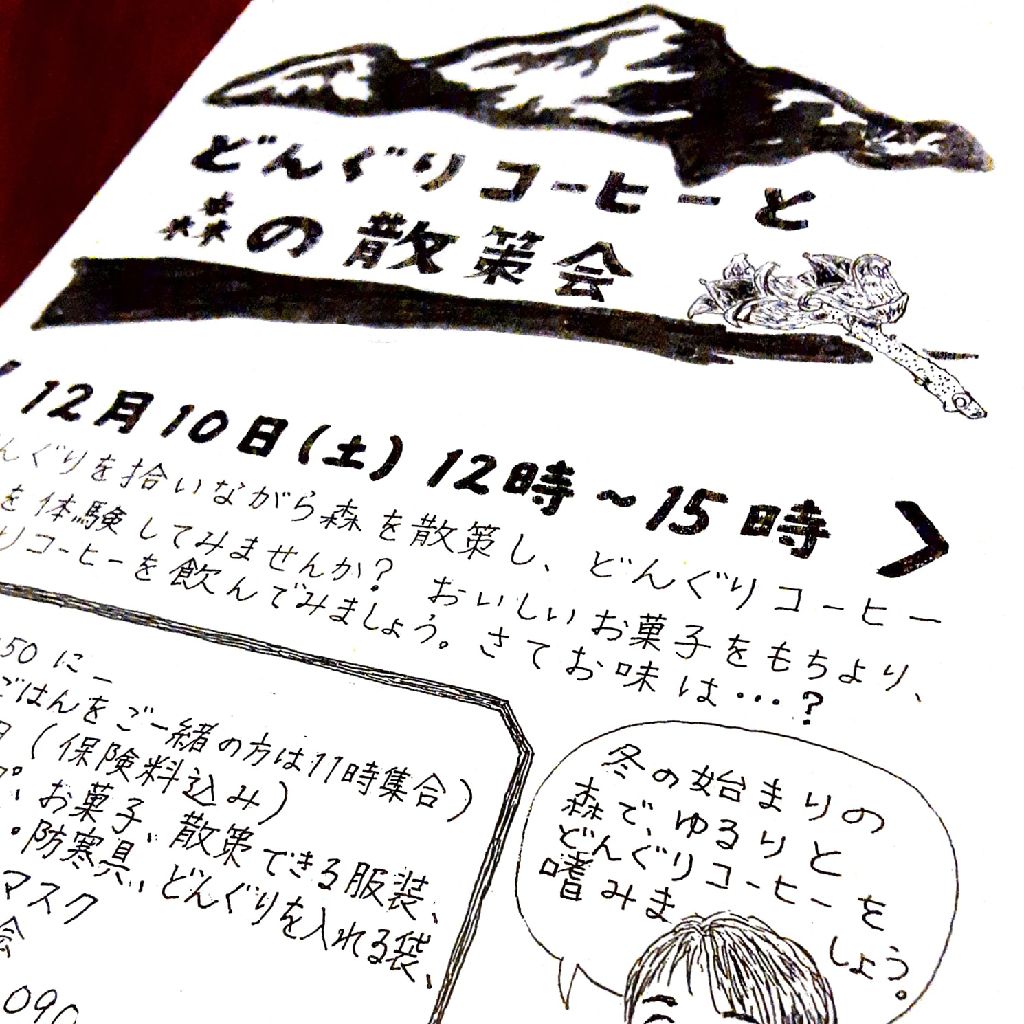 どんぐりコーヒーと
森の散策会
12月10日(土) 12時〜15時
んぐりを拾いながら森を散策し、どんぐりコーヒー
を体験してみませんか? おいしいお菓子をもちより、
りコーヒーを飲んでみましょう。さてお味は…?
50に
ごはんをご一緒の方は11時集合)
(保険料込み)
お菓子、散策できる服装、
・防寒具、どんぐりを入れる袋、
マスク
会
090
冬の始まりの
森で、ゆるりと
どんぐりコーヒーを
嗜みま
しょう。